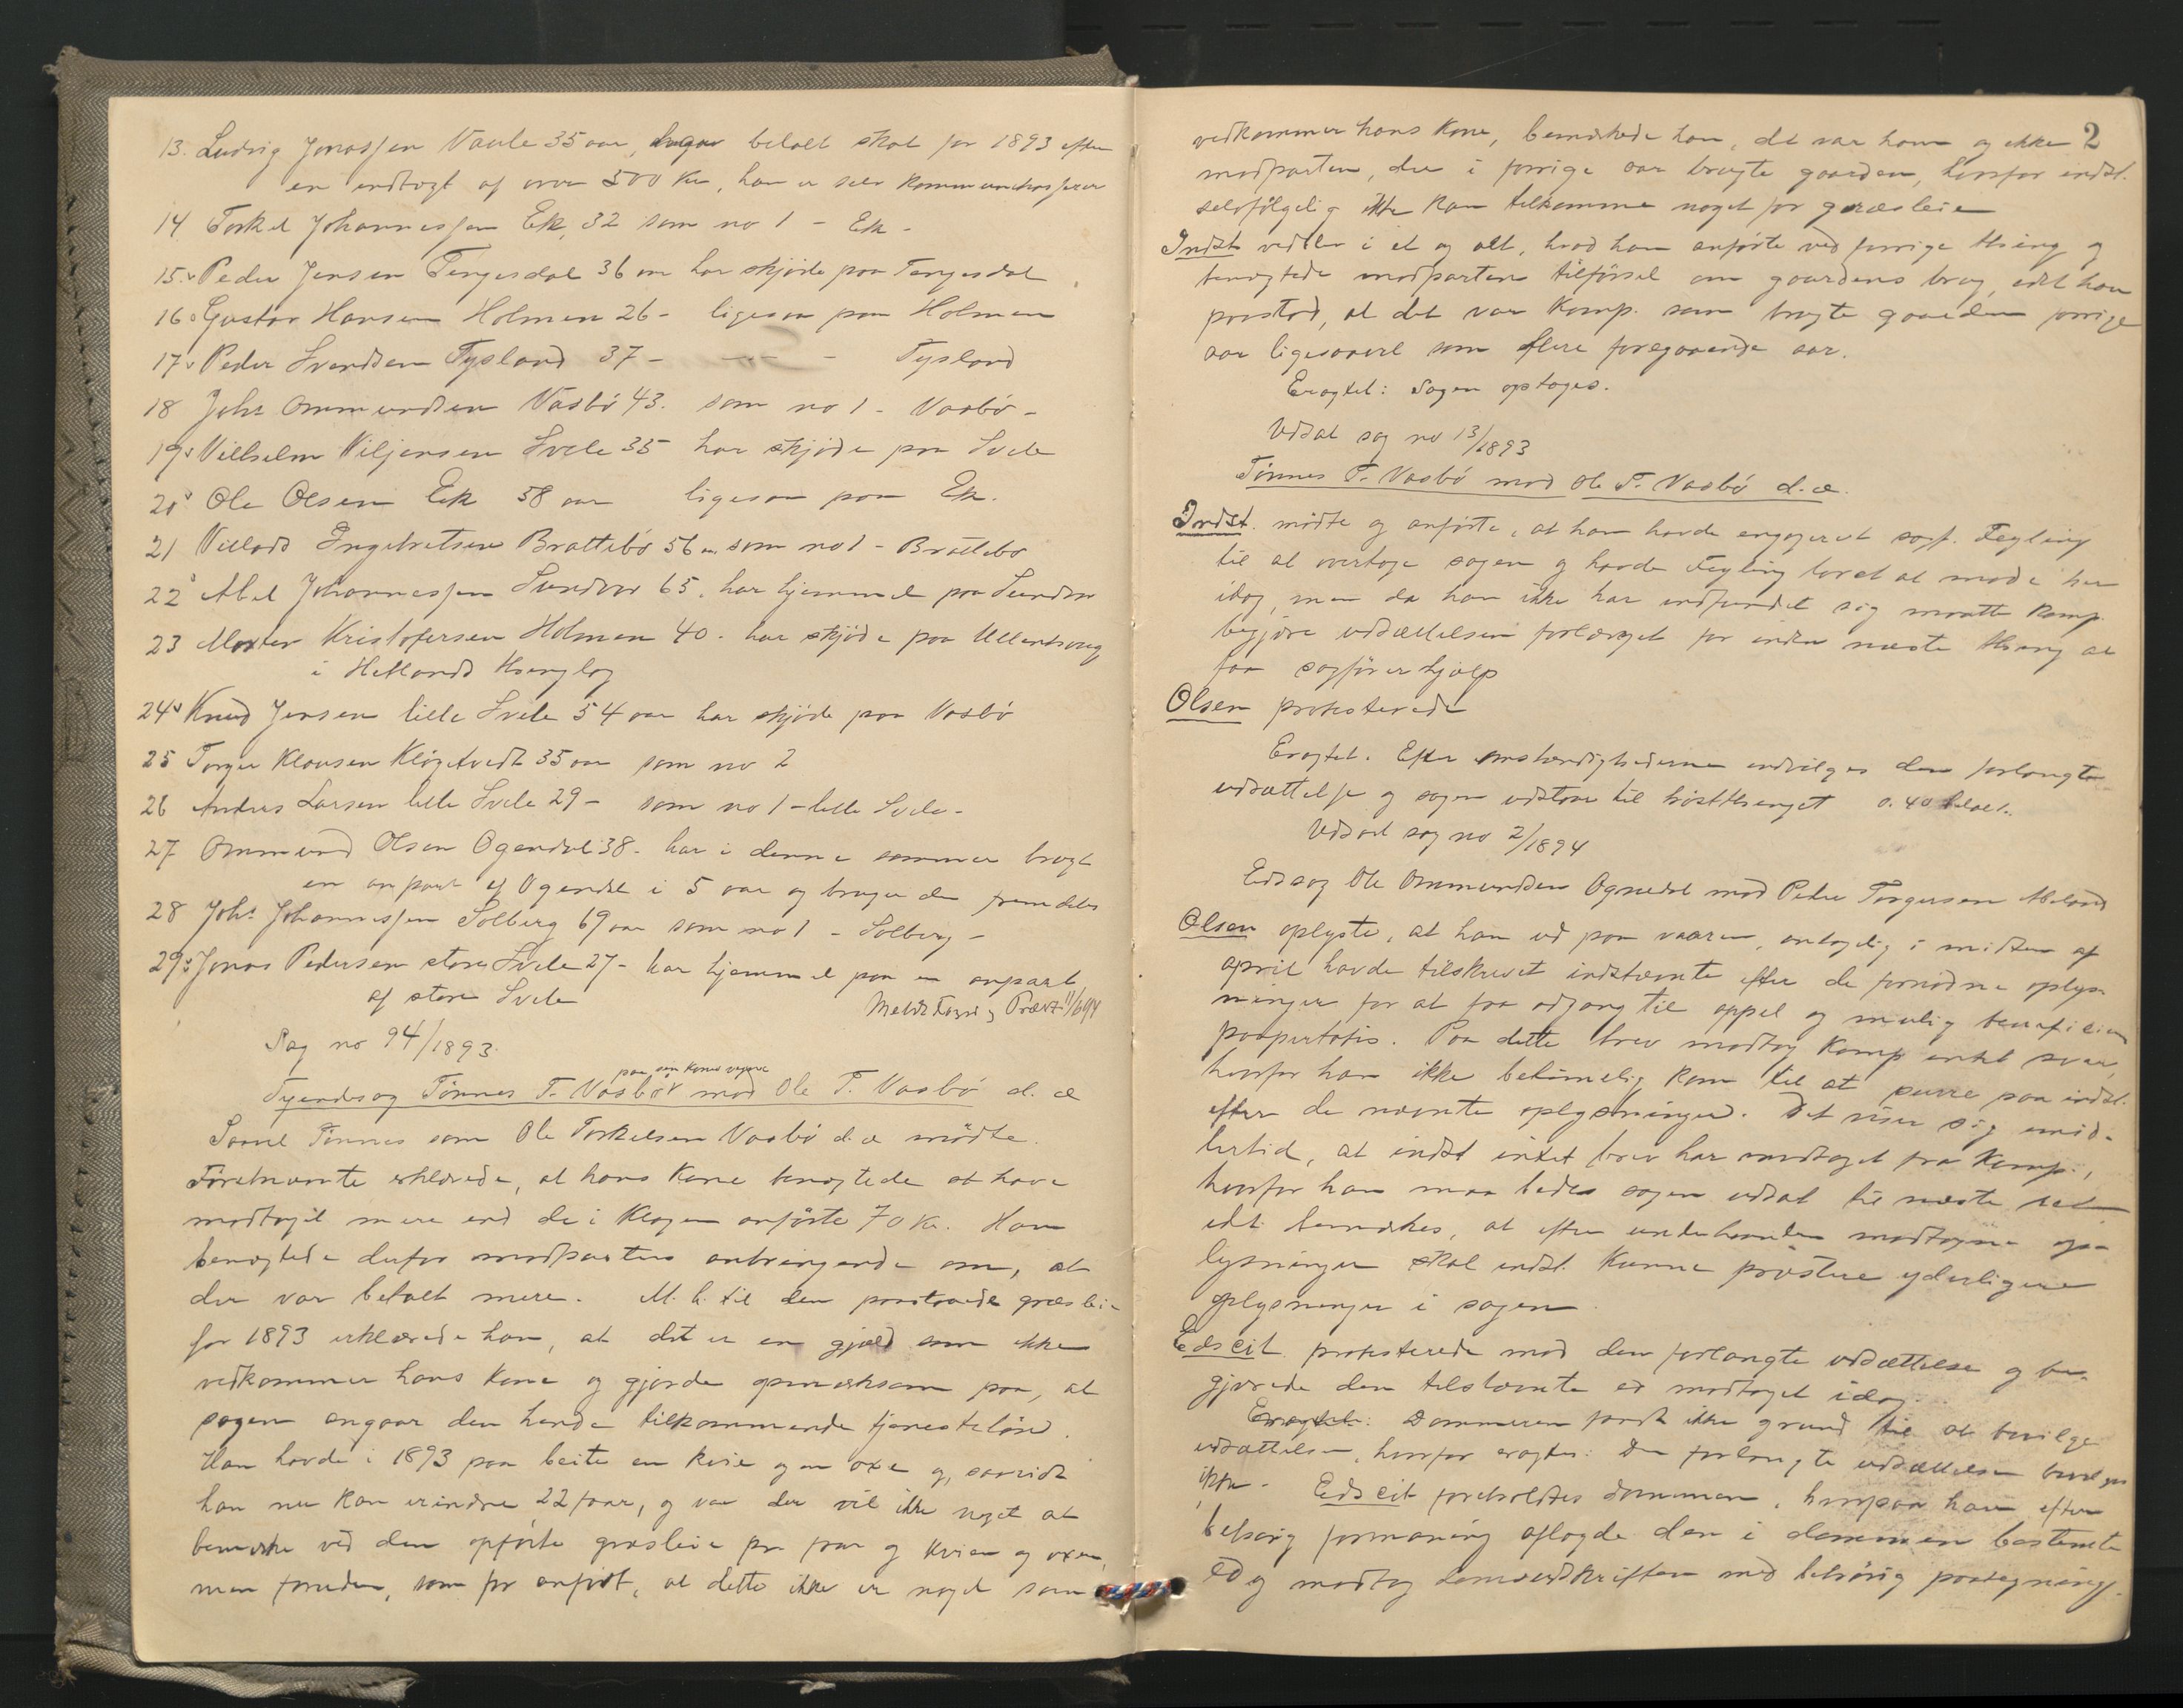 13. Ludvig Jonassen Vaule 35 aar, betalt skat for 1893 efter
en indtægt af over 500 Kr, han er selv
14 Torkel Johannessen Eik, 32 som no 1 - Eik -
15. Peder Jensen Tengesdal 36 aar har skjöde paa Tengesdal
16. Gustav Hansen Holmen 26 - ligesaa paa Holmen
17. Peder Svendsen Tysland 37 - -"- - Tysland
18 Johs Ommundsen Vasbö 43. som no 1 - Vasbö -
19. Villhelm Viljersen Svele 35 har skjöde paa Svele
20 Ole Olsen Eik 58 aar ligesaa paa Eik.
21 Villads Ingebretsen Brattebö 56 aar som no 1 - Brattebö
22 Abel Johannessen Sundvor 65. har hjemmel paa Sundvor
23 Morten Kristofersen Holmen 40 - har skjöde paa
i Hetlands thinglag
24. Knud Jensen lille Svele 54 aar har skjöde paa Vasbö
25 Torger Klausen Kløgetvedt 35 aar som no 2
26 Anders Larsen lille Svele 29 - som no 1 - lille Svele -
27 Ommund Olsen Ognedal 38 - har i denne sommer brugt
en anpart af Ognedal i 5 aar og bruger den fremdeles
28 Johs Johannessen Solberg 69 aar som no 1 - Solberg -
29. Jonas Pedersen store Svele 27 - har hjemmel paa en anpart
af store Svele
11/6 94
Sag no 94/1893.
paa sin kones vegne
Tyendesag Tönnes T. Vasbö mod Ole T. Vasbö d. æ
Saavel Tönnes som Ole Torkelsen Vasbö d. æ mödte.
Förstnævnte erklærede, at hans kone benegtede at have
modtaget mere end de i klagen anförte 70 Kr. Han
benegtede derfor modpartens anbringende om, at
der var betalt mere. M. h. til den paastaaede græsleie
for 1893 erklærede han, at det er en gjæld som ikke
vedkommer hans kone og gjorde opmerksom paa, at
sagen angaar den hende tilkommende tjenestelön.
Han havde i 1893 paa beite en kvie og en oxe og, saavidt
han nu kan erindre 22 faar, og var der vil ikke noget at
bemerke ved den opförte græsleie for faar og kvien og oxen,
men foreden, som för anfört, at dette ikke er noget som
2
vedkommer hans kone, bemerkede han, det var ham og ikke
modparten, der i forrige aar brugte gaarden, hvorfor indst.
selvfölgelig ikke kan tilkomme noget for græsleie
Indst. vedblev i et og alt, hvad han anförte ved forrige thing og
benegtede modpartens tilförsel om gaardens brug, idet han
paastod, at det var komp. som brugte gaarden forrige
aar ligesaavel som flere foregaaende aar.
Eragtet: Sagen optages.
Udsat sag no 13/1893
Tönnes T. Vasbö mod Ole T. Vasbö d. æ.
Indst. mödte og anförte, at han havde engageret sagf. Feyling
til at overtage sagen og havde Feyling lovet at möde her
idag, men da han ikke har indfundet sig maatte komp.
begjære udsættelsen forlænget for inden næste thing at
faa sagförerhjælp
Olsen protesterede
Eragtet. Efter omstændighederne indvilges den forlangte
udsættelse og sagen udstaar til höstthinget 0.40 betalt.
Udsat sag no 2/1894
Edssag Ole Ommundsen Ognedal mod Peder Torgersen
Olsen oplyste, at han ud paa vaaren, antagelig i midten af
april havde tilskrevet indstevnte efter de fornödne oplys-
ninger for at faa adgang til appel og mulig beneficium
paupertatis. Paa dette brev modtog komp intet svar,
hvorfor han ikke betimelig kom til at purre paa indst.
efter de nævnte oplysninger. Det viser sig imid-
lertid, at indst intet brev har modtaget fra komp.,
hvorfor han maa bede sagen udsat til næste ret
idt. bemerkes, at efter underhaanden modtagne op-
lysninger skal indst. kunne præstere yderligere
oplysninger i sagen
Eds cit. protesterede mod den forlangte udsættelse og be-
gjærede den tilstevnte ed modtaget idag.
Eragtet: Dommeren fandt ikke grund til at bevilge
udsættelsen, hvorfor eragtes: Den forlangte udsættelse bevilges
ikke. Eds cit foreholdtes dommen, hvorpaa han efter
behörig formaning aflagde den i dommen bestemte
ed og modtog domsudskriften med behörig paategning.